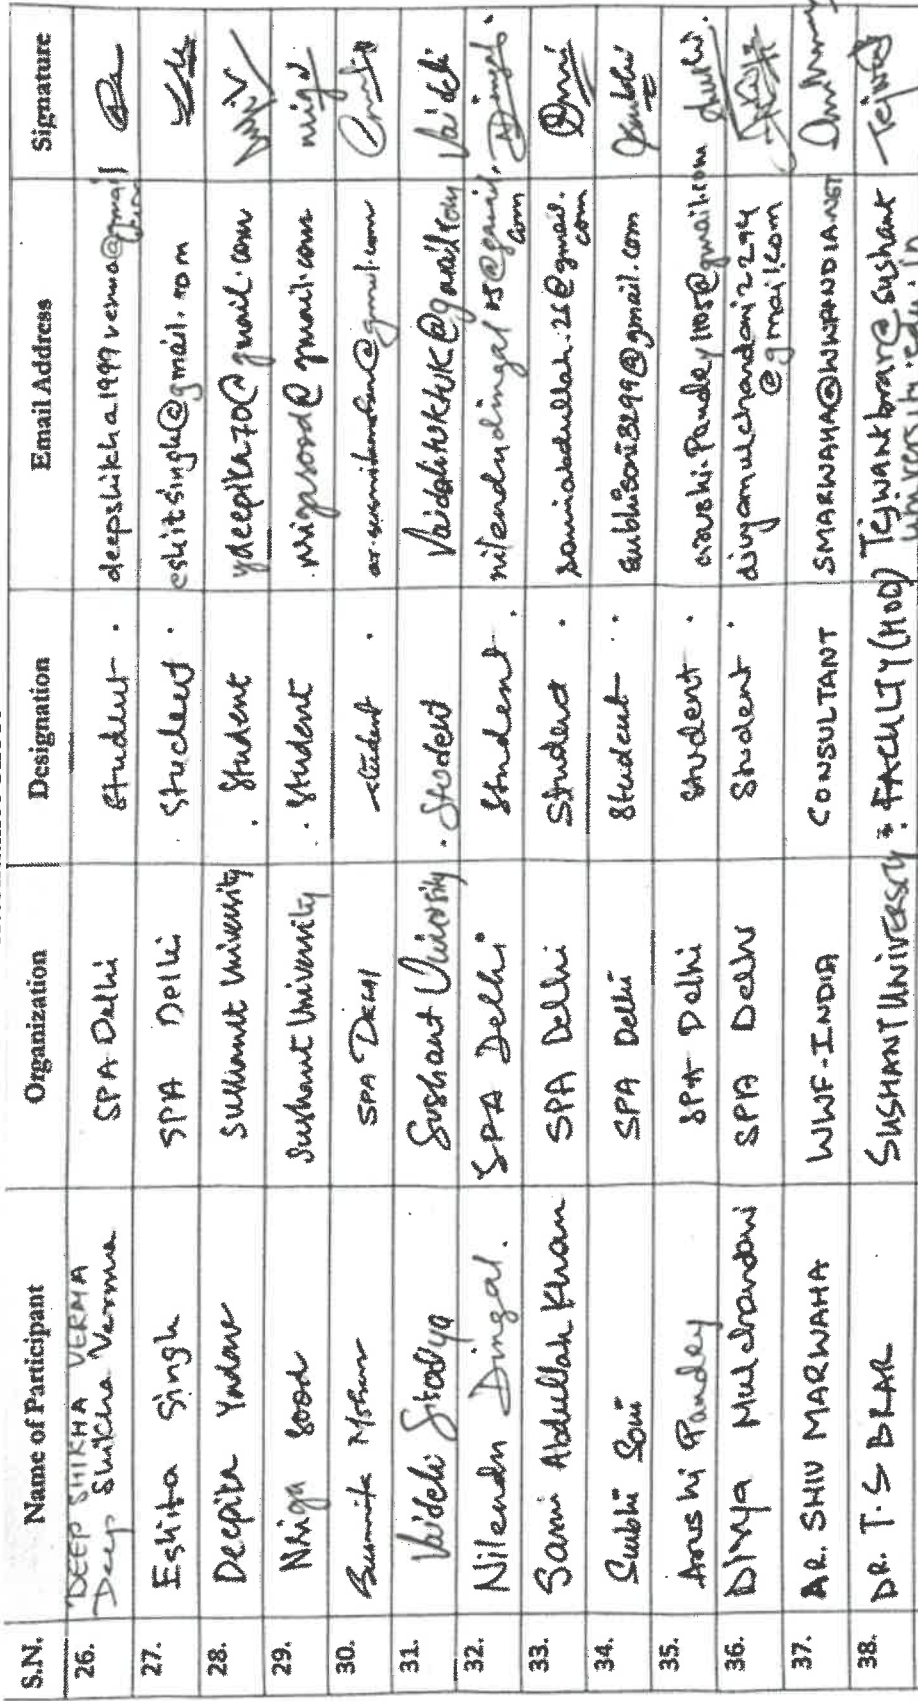 S.N. Name of Participant Organization Designation Email Address Signature
26. DEEP SHIKHA VERMA
Deep Shikha Verma SPA Delhi Student. deepshikha1999verma@gmail
27. Eshita Singh SPA Delhi Student. eshitsingh@gmail.com
28. Deepika Yadav Sushant University Student ydeepika70@gmail.com
29. Nriga Sood Sushant University Student nrigasood@gmail.com
30. Susmita Mohan SPA DELHI student
31. Vaidehi Sushant University Student Vaidehi
32. Nilendu Dingal. SPA Delhi Student. nilendudingal05@gmail.
com Dingal.
33. Sami Abdullah Khan SPA Delhi Student samiabdullah.26@gmail.
com
34. Surbhi Soni SPA Delhi Student Surbhi
35. Arushi Pandey SPA Delhi Student arushi.Pandey1105@gmail.com
36. Divya Mulchandani SPA Delhi Student divyamulchandani2294
@gmail.com
37. AR. SHIV MARWAHA WWF-INDIA CONSULTANT SMARWAHA@WWFINDIA.NET
38. DR. T.S BRAR SUSHANT UNIVERSITY FACULTY (HOD) Tejwantbrar@sushant
university.edu.in